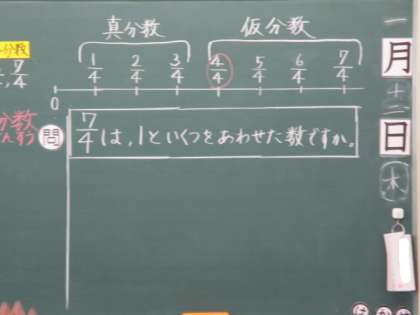 真分数 仮分数
分数
7/4
1/4 2/4 3/4 4/4 5/4 6/4 7/4
0
分数
んすう
問 7/4は,1といくつをあわせた数ですか。
一
月
十
二
日
木